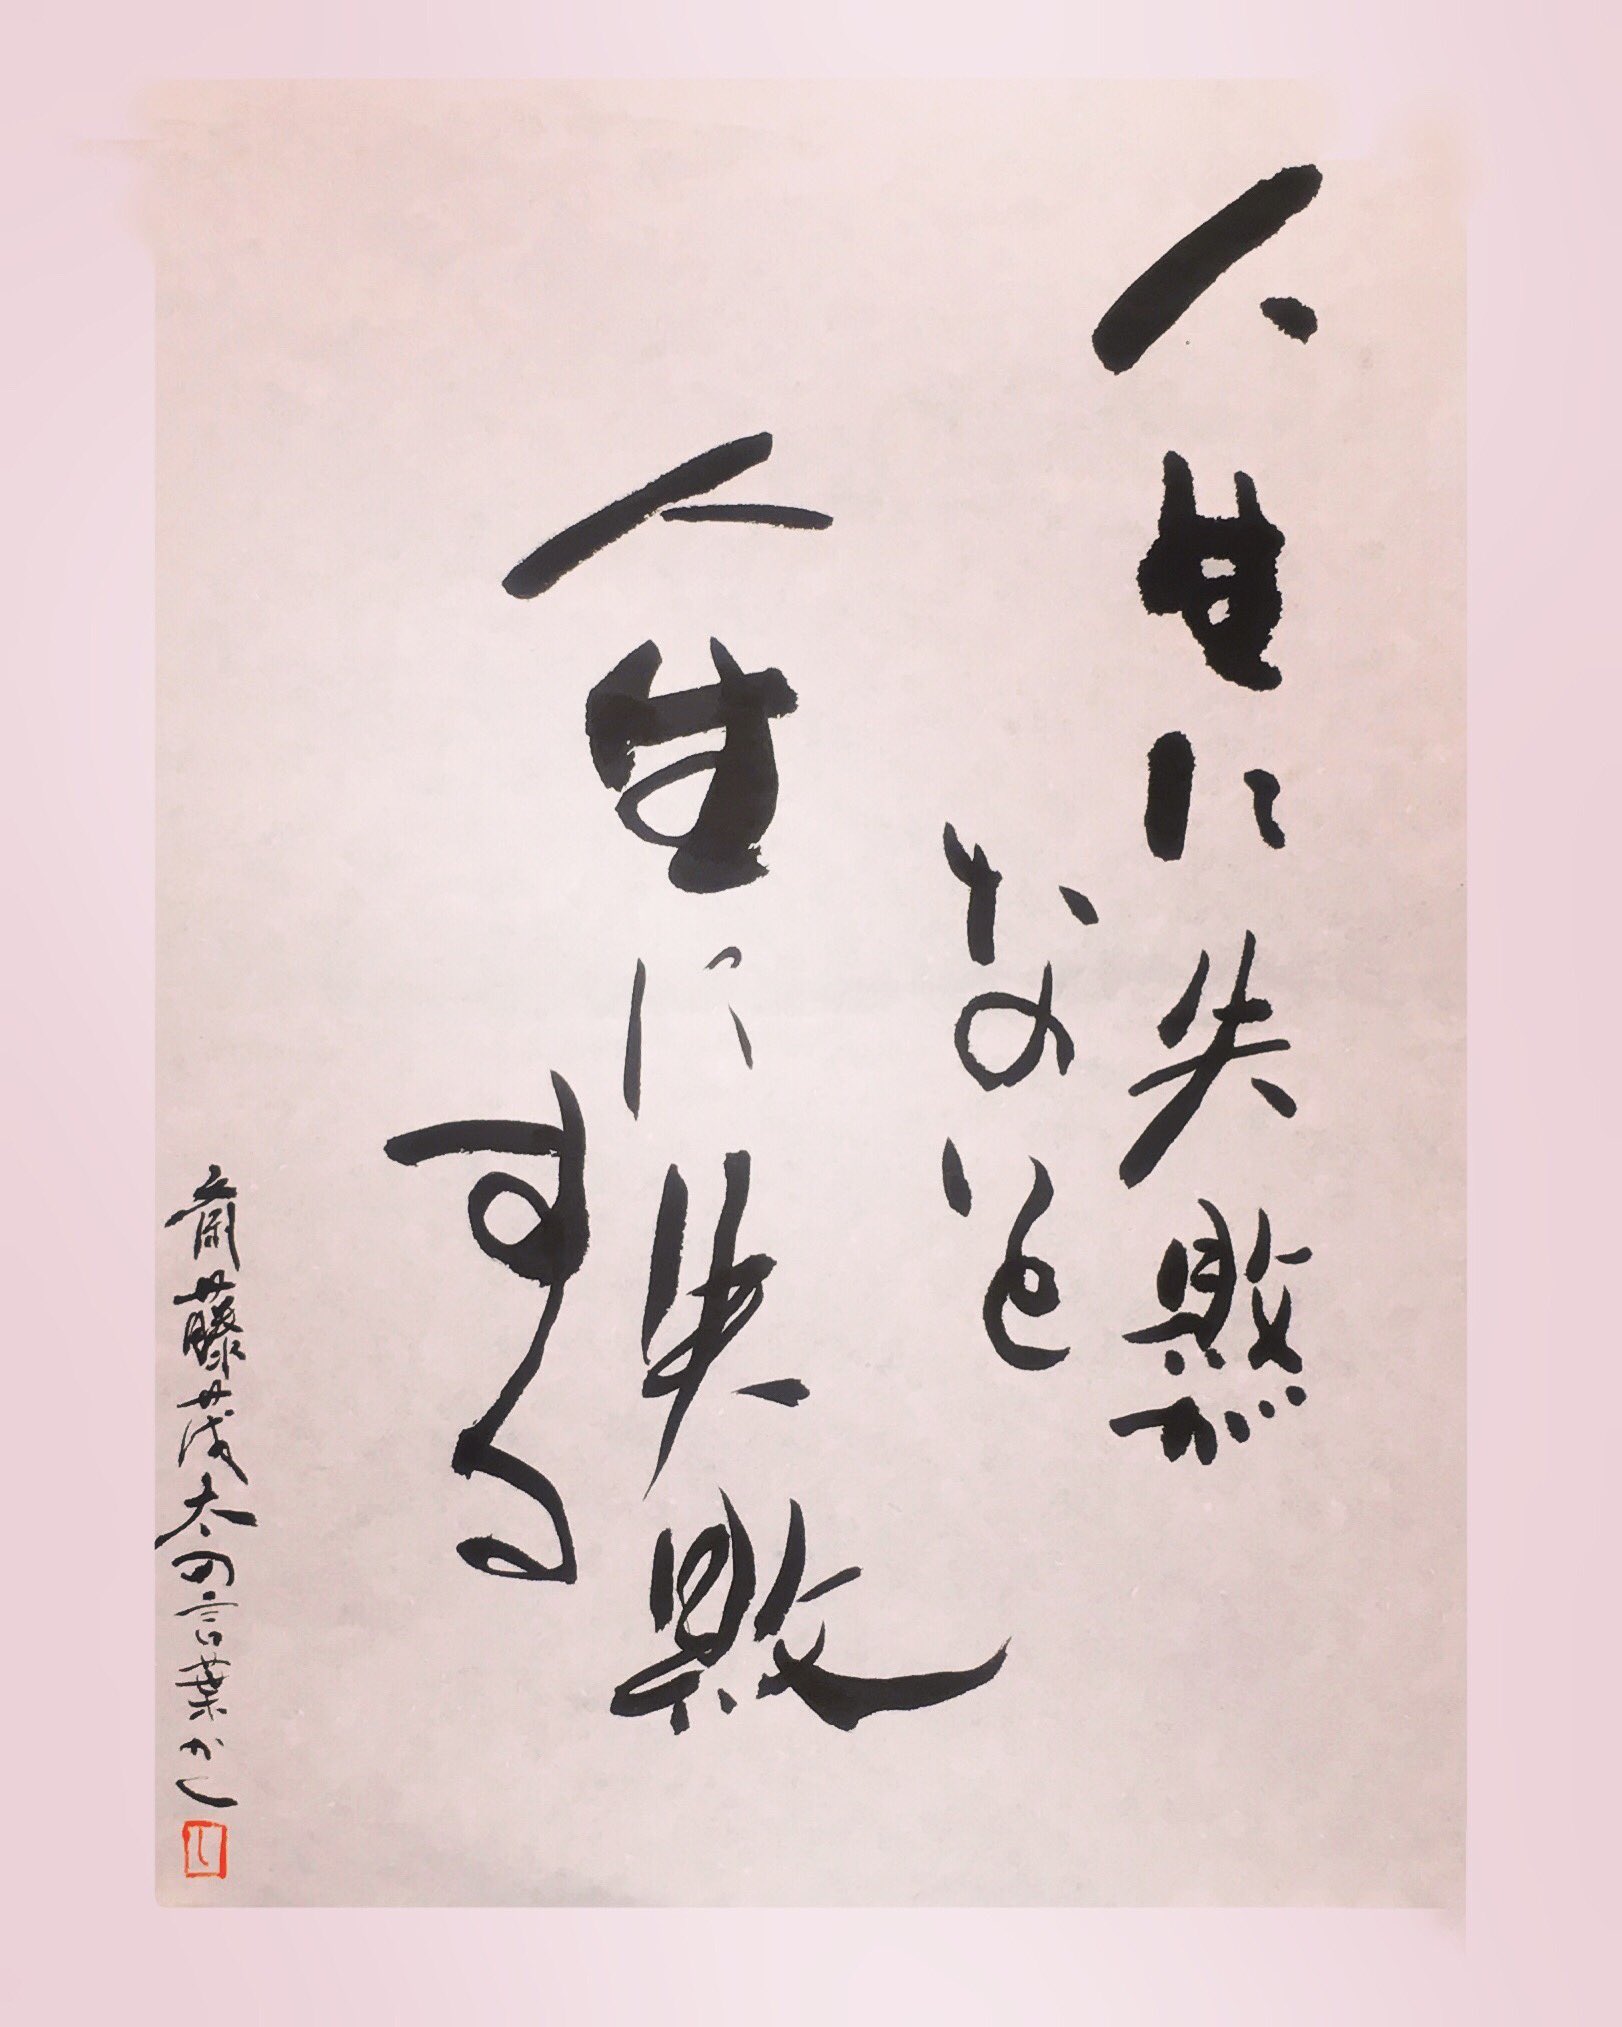 人生に失敗が
ないと
人生に失敗
する
斎藤茂太の言葉かく